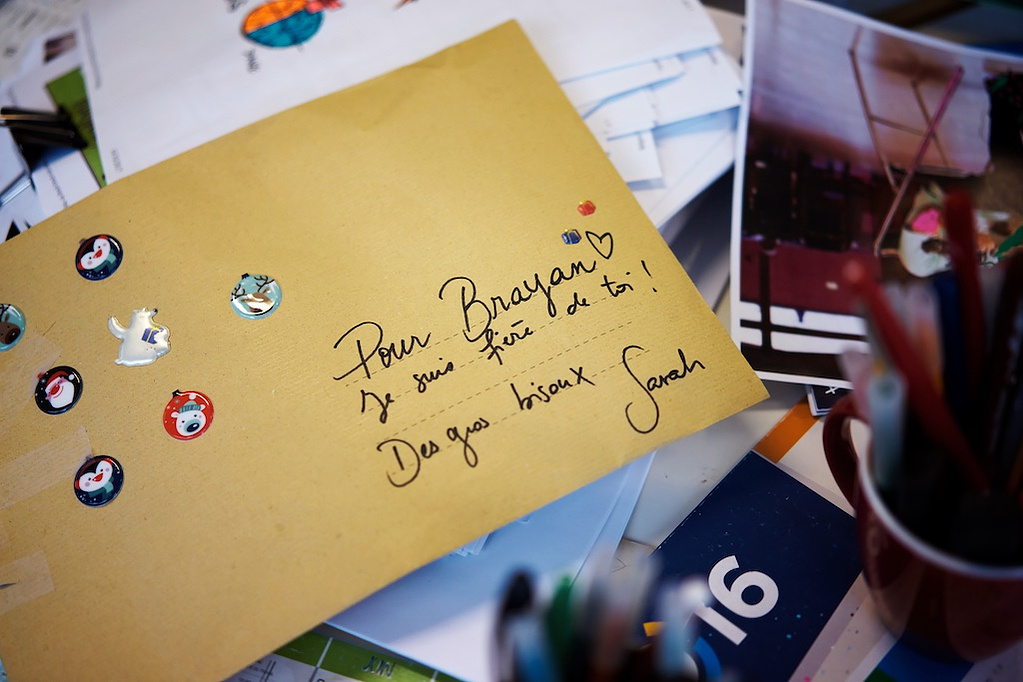 Pour Brayan
Je suis fière de toi !
Des gros bisoux Sarah
16